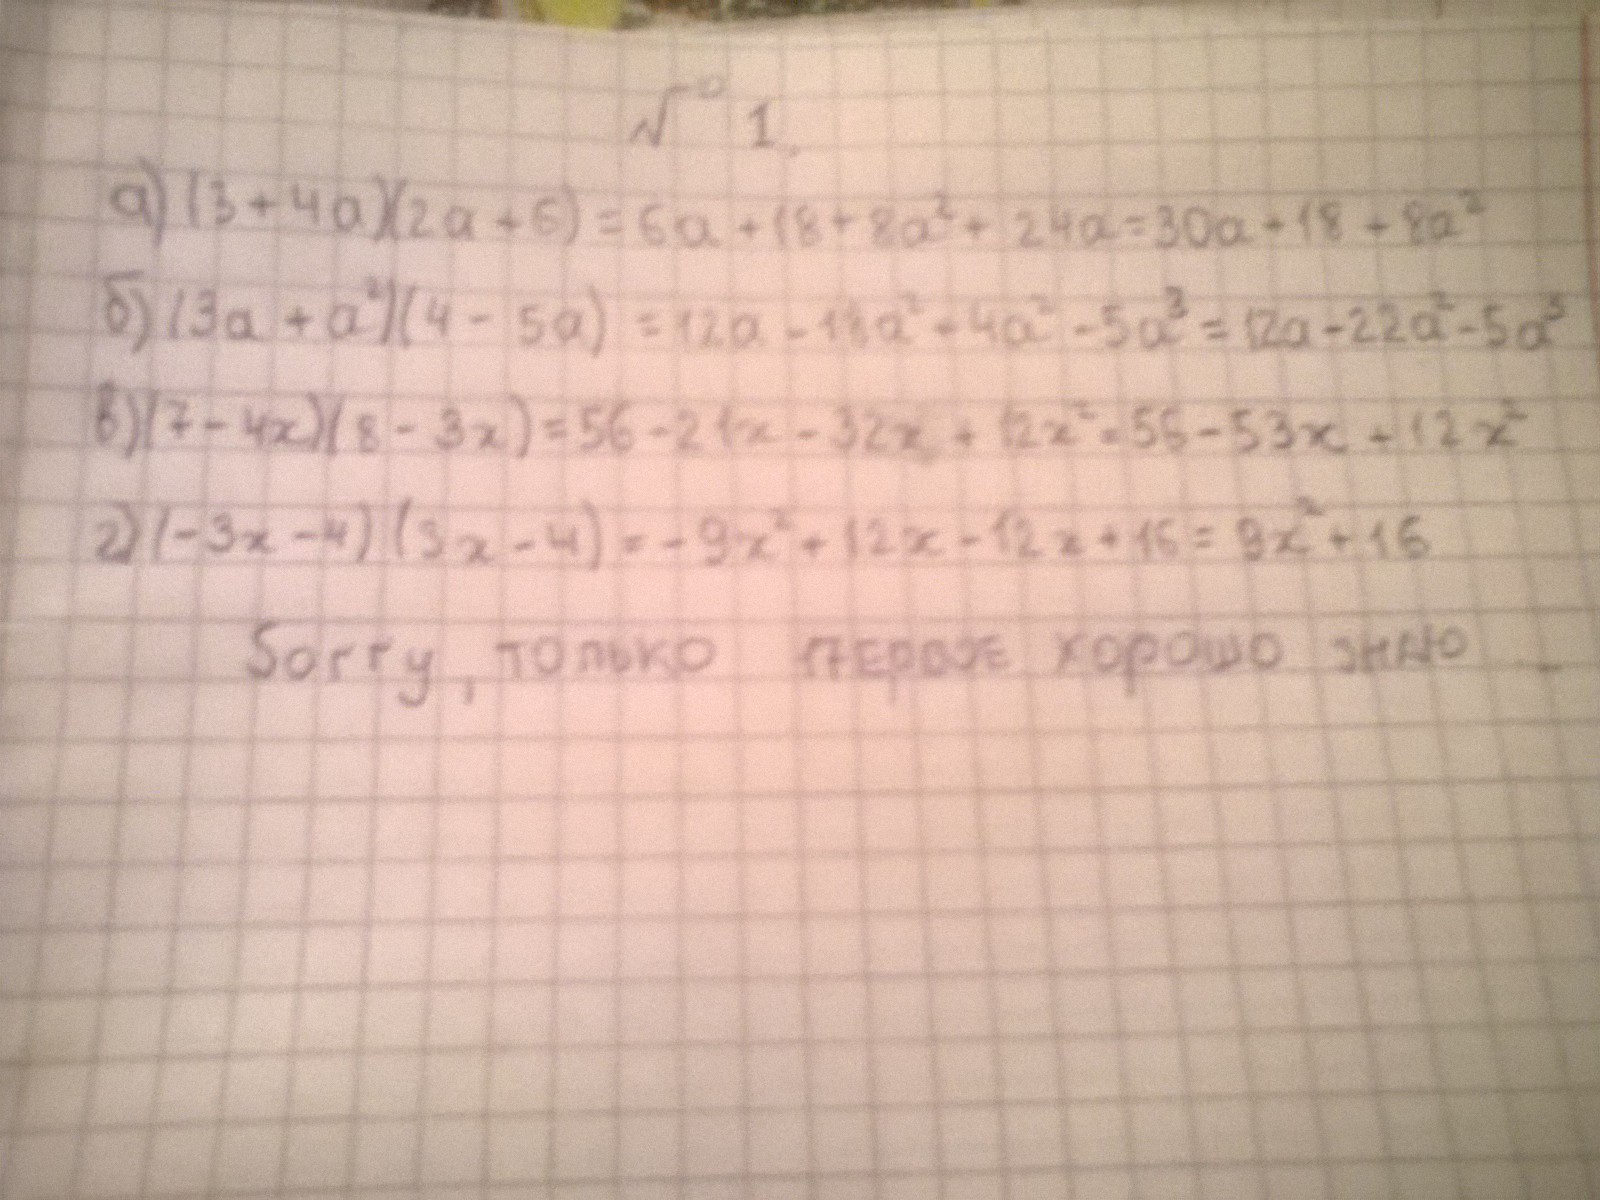 № 1.
а) (3 + 4a)(2a + 6) = 6a + 18 + 8a² + 24a = 30a + 18 + 8a²
б) (3a + a²)(4 - 5a) = 12a - 18a² + 4a² - 5a³ = 12a - 22a² - 5a³
в) (7 - 4x)(8 - 3x) = 56 - 21x - 32x + 12x² = 56 - 53x + 12x²
г) (-3x - 4) (3x - 4) = -9x² + 12x - 12x + 16 = 9x² + 16
Sorry, только первое хорошо знаю